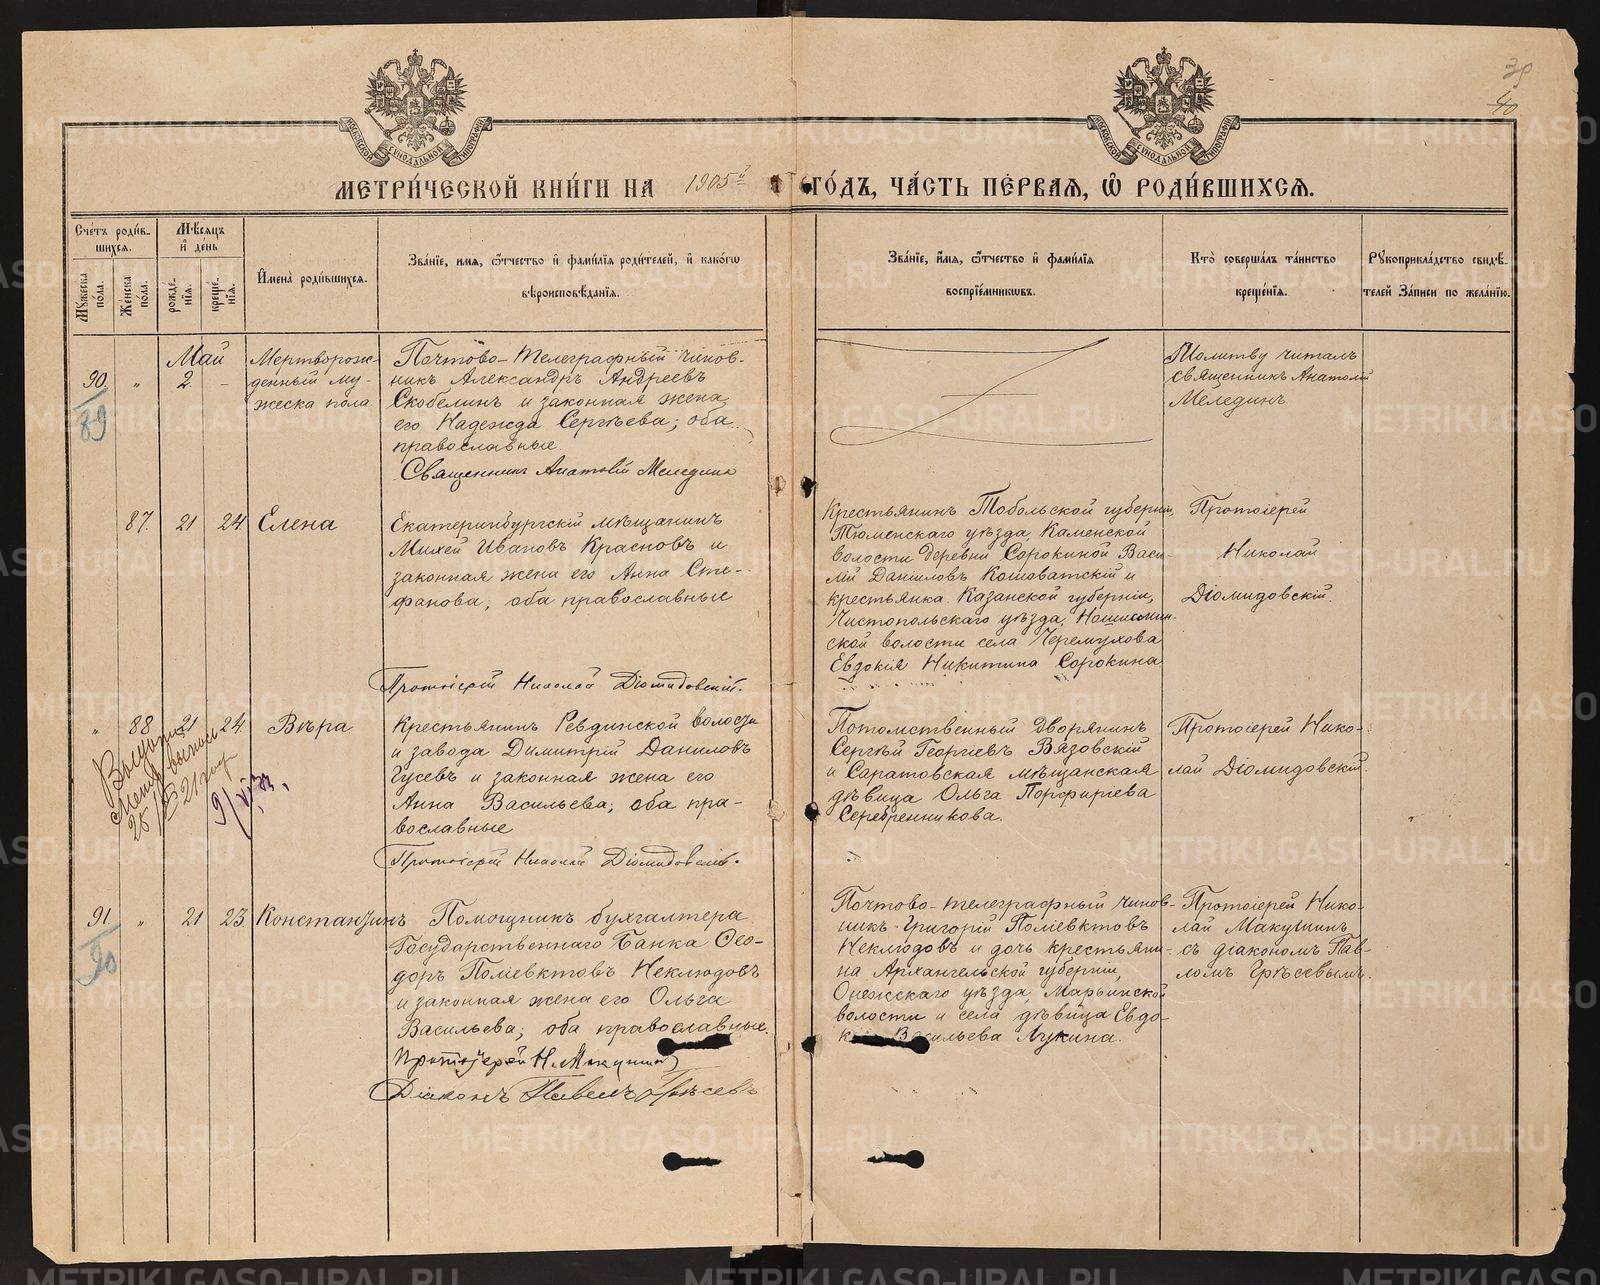 МЕТРИ́ЧЕСКОЙ КНИ́ГИ НА 1905й ГО́ДЪ, ЧА́СТЬ ПЕ́РВАЯ, Ѿ РОДИ́ВШИХСЯ.
МОСКОВСКОЙ СѴНОДАЛЬНОЙ ТИПОГРАФІИ
МОСКОВСКОЙ СѴНОДАЛЬНОЙ ТИПОГРАФІИ
40
Сче́тъ роди́в-
шихся.
Мꙋжеска по́ла.
Же́нска по́ла.
Мѣ́сяцъ
и́ день
рожде́-
нїя.
креще́-
нїя.
И҆мена̀ роди́вшихся.
Зва́нїе, и҆мя, ѻ҆́тчество и҆ фами́лїя роди́телей, и҆ како́гѡ
вѣроисповѣ́данїя.
Зва́нїе, и҆́мя, ѻ҆́тчество и҆ фами́лїя
воспрїе́мникѡвъ.
Кто̀ соверша́лъ та́инство
креще́нїя.
Рꙋкоприкла́дство свидѣ́-
телей За́писи по жела́нїю.
90
89
"
Май
2.
-
Мертворож-
денный му-
жеска пола
Почтово-телеграфный чинов-
никъ Александръ Андреевъ
Скобелинъ и законная жена
его Надежда Сергѣева; оба
православные
Священникъ Анатолій Меледин
Молитву читалъ
священникъ Анатолій
Мелединъ
87.
21
24
Елена
Екатеринбургскій мѣщанинъ
Михей Ивановъ Красновъ и
законная жена его Анна Сте-
фанова; оба православные
Протоіерей Николай Діомидовскій.
Крестьянинъ Тобольской губерніи,
Тюменскаго уѣзда, Каменской
волости деревни Сорокиной Васи-
лій Даниловъ Кошоватскій и
крестьянка Казанской губерніи,
Чистопольскаго уѣзда,
ской волости села Черемухова
Евдокія Никитина Сорокина
Протоіерей
Николай
Діомидовскій.
"
88
21
24
Вѣра
Крестьянинъ Ревдинской волости
и завода Димитрій Даниловъ
Гусевъ и законная жена его
Анна Васильева; оба пра-
вославные
Протоіерей Николай Діомидовскій.
Потомственный дворянинъ
Сергѣй Георгіевъ Вязовскій
и Саратовская мѣщанская
дѣвица Ольга Порфирьева
Серебренникова.
Протоіерей Нико-
лай Діомидовскій
91
90
"
21
23.
Константинъ
Помощникъ бухгалтера
Государственнаго Банка Ѳео-
доръ Поліевктовъ Неклюдовъ
и законная жена его Ольга
Васильева; оба православные.
Протоіерей Н. Макушин
Діаконъ Павелъ Грѣсевъ
Почтово-телеграфный чинов-
никъ Григорій Поліевктовъ
Неклюдовъ и дочь крестьяни-
на Архангельской губерніи,
Онежскаго уѣзда, Марьинской
волости и села дѣвица Евдо-
Васильева Лукина.
Протоіерей Нико-
лай Макушинъ
съ діакономъ Пав-
ломъ Грѣсевымъ.
METRIKI.GASO-URAL.RU